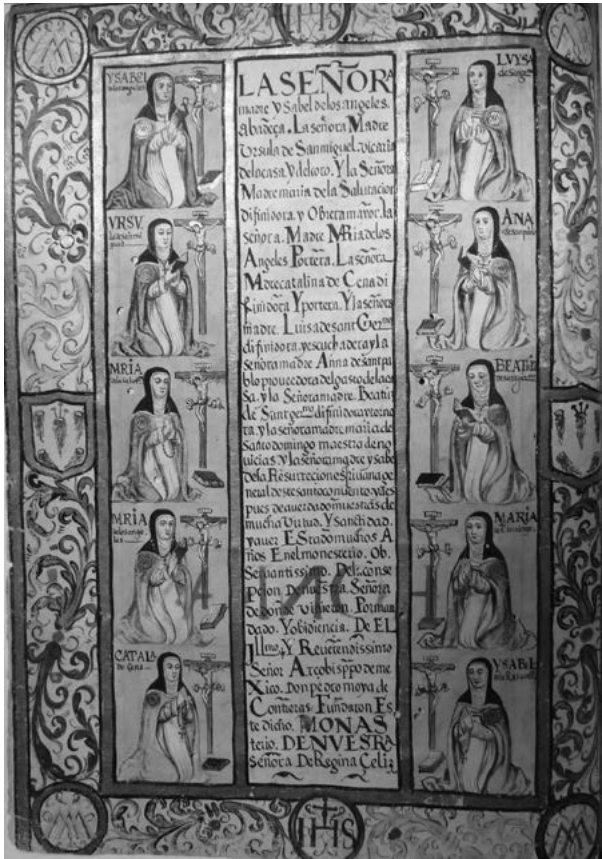 IHS
YSABEL
delosangeles
VRSV
MRIA
MRIA
delosange
les
CATALA
de Cena
LA SEÑORA
madre ysabel delos angeles.
abadeça. La señora Madre
Vrsula de Sanmiguel. vicaria
delacasa, y del coro. Y la Señora
Madre maria de la Salutacion
difinidora. y Obrera mayor. la
señora. Madre MRia delos
Angeles Portera. La señora
Mdre catalina de Cena di
finidora Y portera. Y la señora
madre. Luisa de sant Germo
difinidora. yescuchadera y la
señora madre Anna de sant pa
blo proueedora del gasto dela ca
sa. y la Señora madre. Beatriz
de Sant germo difinidora y torne
ra. y la señora madre maria de
santo domingo maestra de no
uicias. y la señora madre ysabel
dela Resurrecion Escriuana ge
neral deste santo conuento. y des
pues de auer dado muestras de
mucha Virtud. Y Sanctidad.
y auer EStado muchos A
ños En el monesterio. Ob
Seruantissimo. Dela conse
pcion De nuestra. Señora
de donde vinieron. Por man
dado. Y obidiencia. De EL
Illmo. Y Reuerendissimo
Señor Arçobisppo de me
Xico. Don pedro moya de
Contreras Fundaron Es
te dicho. MONAS
terio. DE NVESTRA
Señora De Regina Çeliz
LVYSA
ANA
BEATRIZ
MARIA
YSABEL
IHS